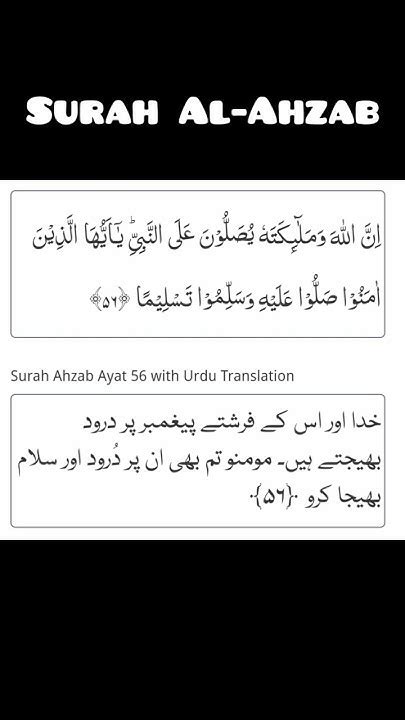 SURAH AL-AHZAB
اِنَّ اللّٰهَ وَمَلٰٓىِٕكَتَهٗ یُصَلُّوْنَ عَلَی النَّبِیِّ ؕ یٰۤاَیُّهَا الَّذِیْنَ
اٰمَنُوْا صَلُّوْا عَلَیْهِ وَسَلِّمُوْا تَسْلِیْمًا ﴿۵۶﴾
Surah Ahzab Ayat 56 with Urdu Translation
خدا اور اس کے فرشتے پیغمبر پر درود
بھیجتے ہیں۔ مومنو تم بھی ان پر دُرود اور سلام
بھیجا کرو ﴿۵۶﴾